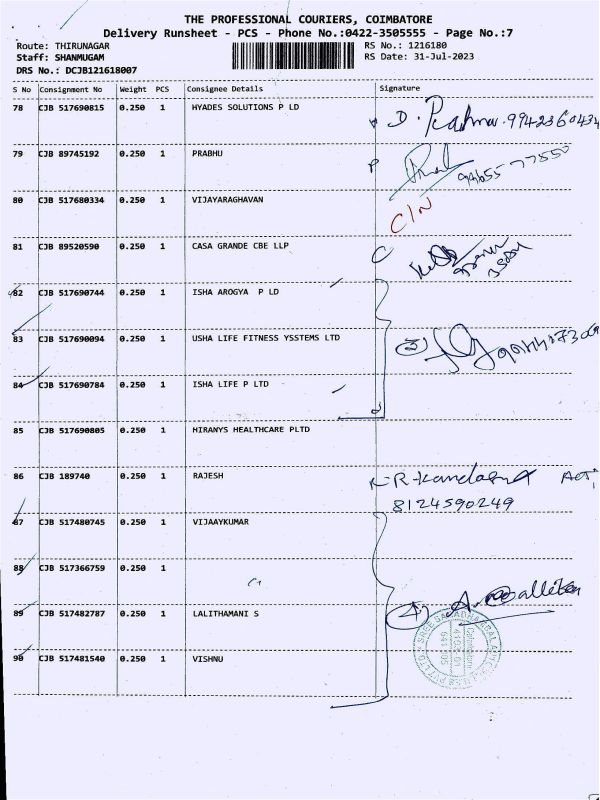 THE PROFESSIONAL COURIERS, COIMBATORE
Delivery Runsheet - PCS - Phone No.:0422-3505555 - Page No.:7
Route: THIRUNAGAR RS No.: 1216180
Staff: SHANMUGAM RS Date: 31-Jul-2023
DRS No.: DCJB121618007
S No Consignment No Weight PCS Consignee Details Signature
78 CJB 517690815 0.250 1 HYADES SOLUTIONS P LD
79 CJB 89745192 0.250 1 PRABHU
80 CJB 517680334 0.250 1 VIJAYARAGHAVAN C/N
81 CJB 89520590 0.250 1 CASA GRANDE CBE LLP
82 CJB 517690744 0.250 1 ISHA AROGYA P LD
83 CJB 517690094 0.250 1 USHA LIFE FITNESS YSSTEMS LTD
84 CJB 517690784 0.250 1 ISHA LIFE P LTD
85 CJB 517690805 0.250 1 HIRANYS HEALTHCARE PLTD
86 CJB 189740 0.250 1 RAJESH
8124590249
87 CJB 517480745 0.250 1 VIJAAYKUMAR
88 CJB 517366759 0.250 1
89 CJB 517482787 0.250 1 LALITHAMANI S
90 CJB 517481540 0.250 1 VISHNU